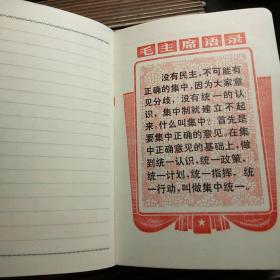 毛主席语录
没有民主，不可能有
正确的集中，因为大家意
见分歧，没有统一的认
识，集中制就建立不起
来。什么叫集中？首先是
要集中正确的意见。在集
中正确意见的基础上，做
到统一认识，统一政策，
统一计划，统一指挥，统
一行动，叫做集中统一。